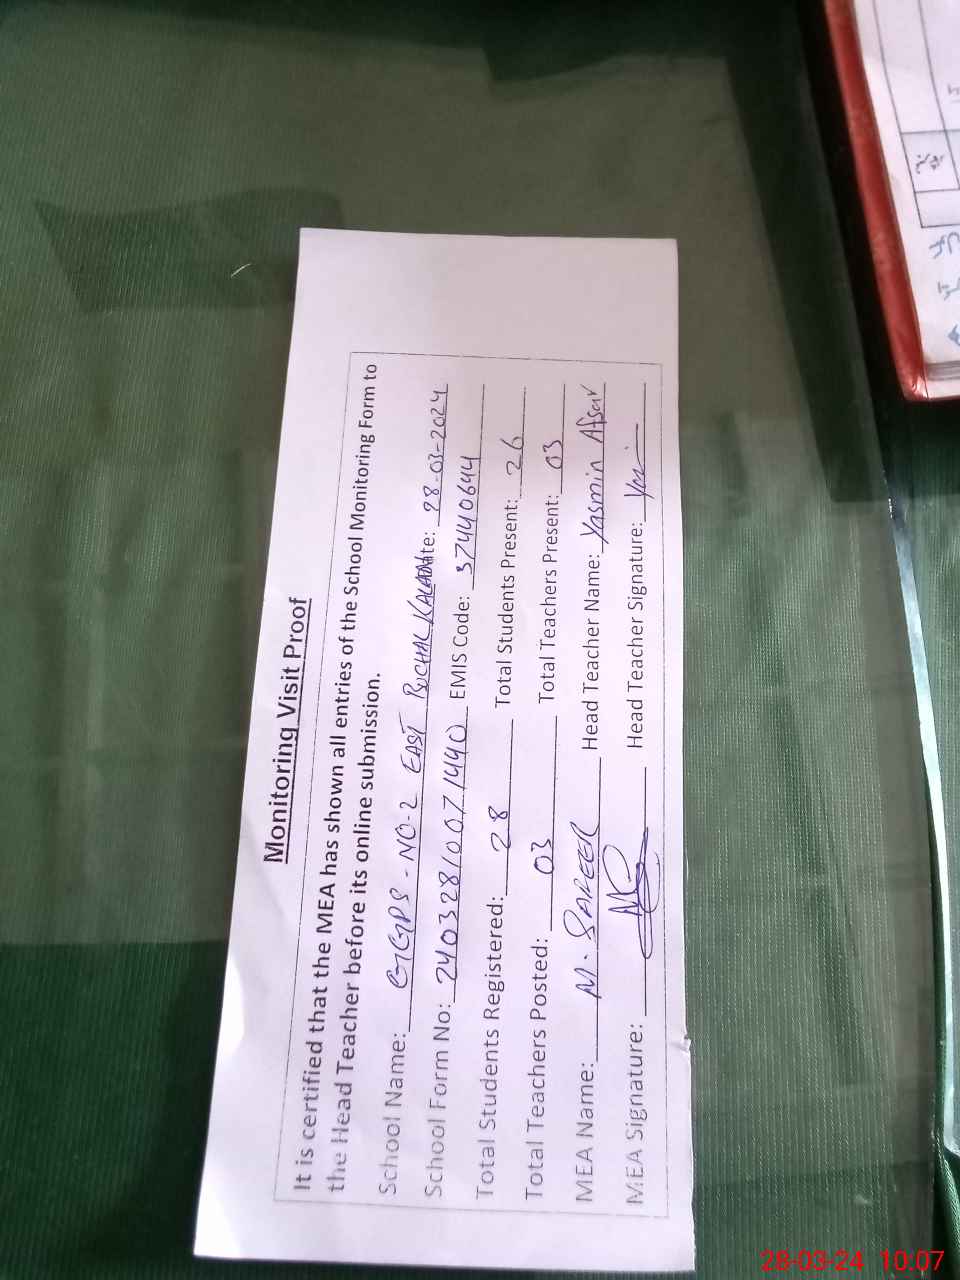 Monitoring Visit Proof
It is certified that the MEA has shown all entries of the School Monitoring Form to
the Head Teacher before its online submission.
School Name: GGPS-NO-2 EAST BUCHAL KALAN Date: 28-03-2024
School Form No: 24032810071440 EMIS Code: 37440644
Total Students Registered: 28 Total Students Present: 26
Total Teachers Posted: 03 Total Teachers Present: 03
MEA Name: M. SAFEER Head Teacher Name: Yasmin Afsar
MEA Signature: Head Teacher Signature:
28-03-24 10:07